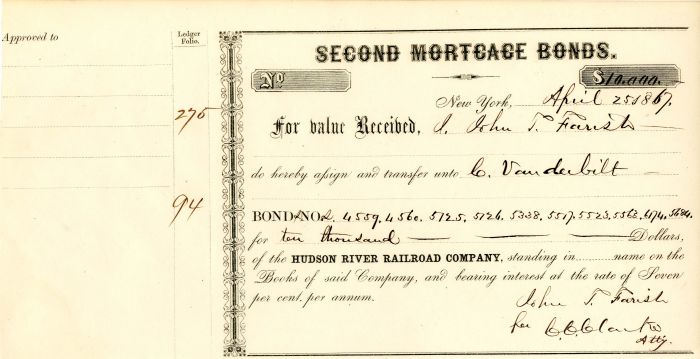 Approved to
Ledger
Folio.
275
94
SECOND MORTGAGE BONDS.
No
$10.000.
New York, April 25 1867.
For value Received, I. John T. Farish
do hereby aſsign and transfer unto C. Vanderbilt
BONDS NOS. 4559. 4560. 5125. 5126. 5338. 5517. 5523. 5563. 5684.
for ten thousand Dollars,
of the HUDSON RIVER RAILROAD COMPANY, standing in name on the
Books of said Company, and bearing interest at the rate of Seven
per cent. per annum.
John T. Farish
per C.C. Clarke
Atty.